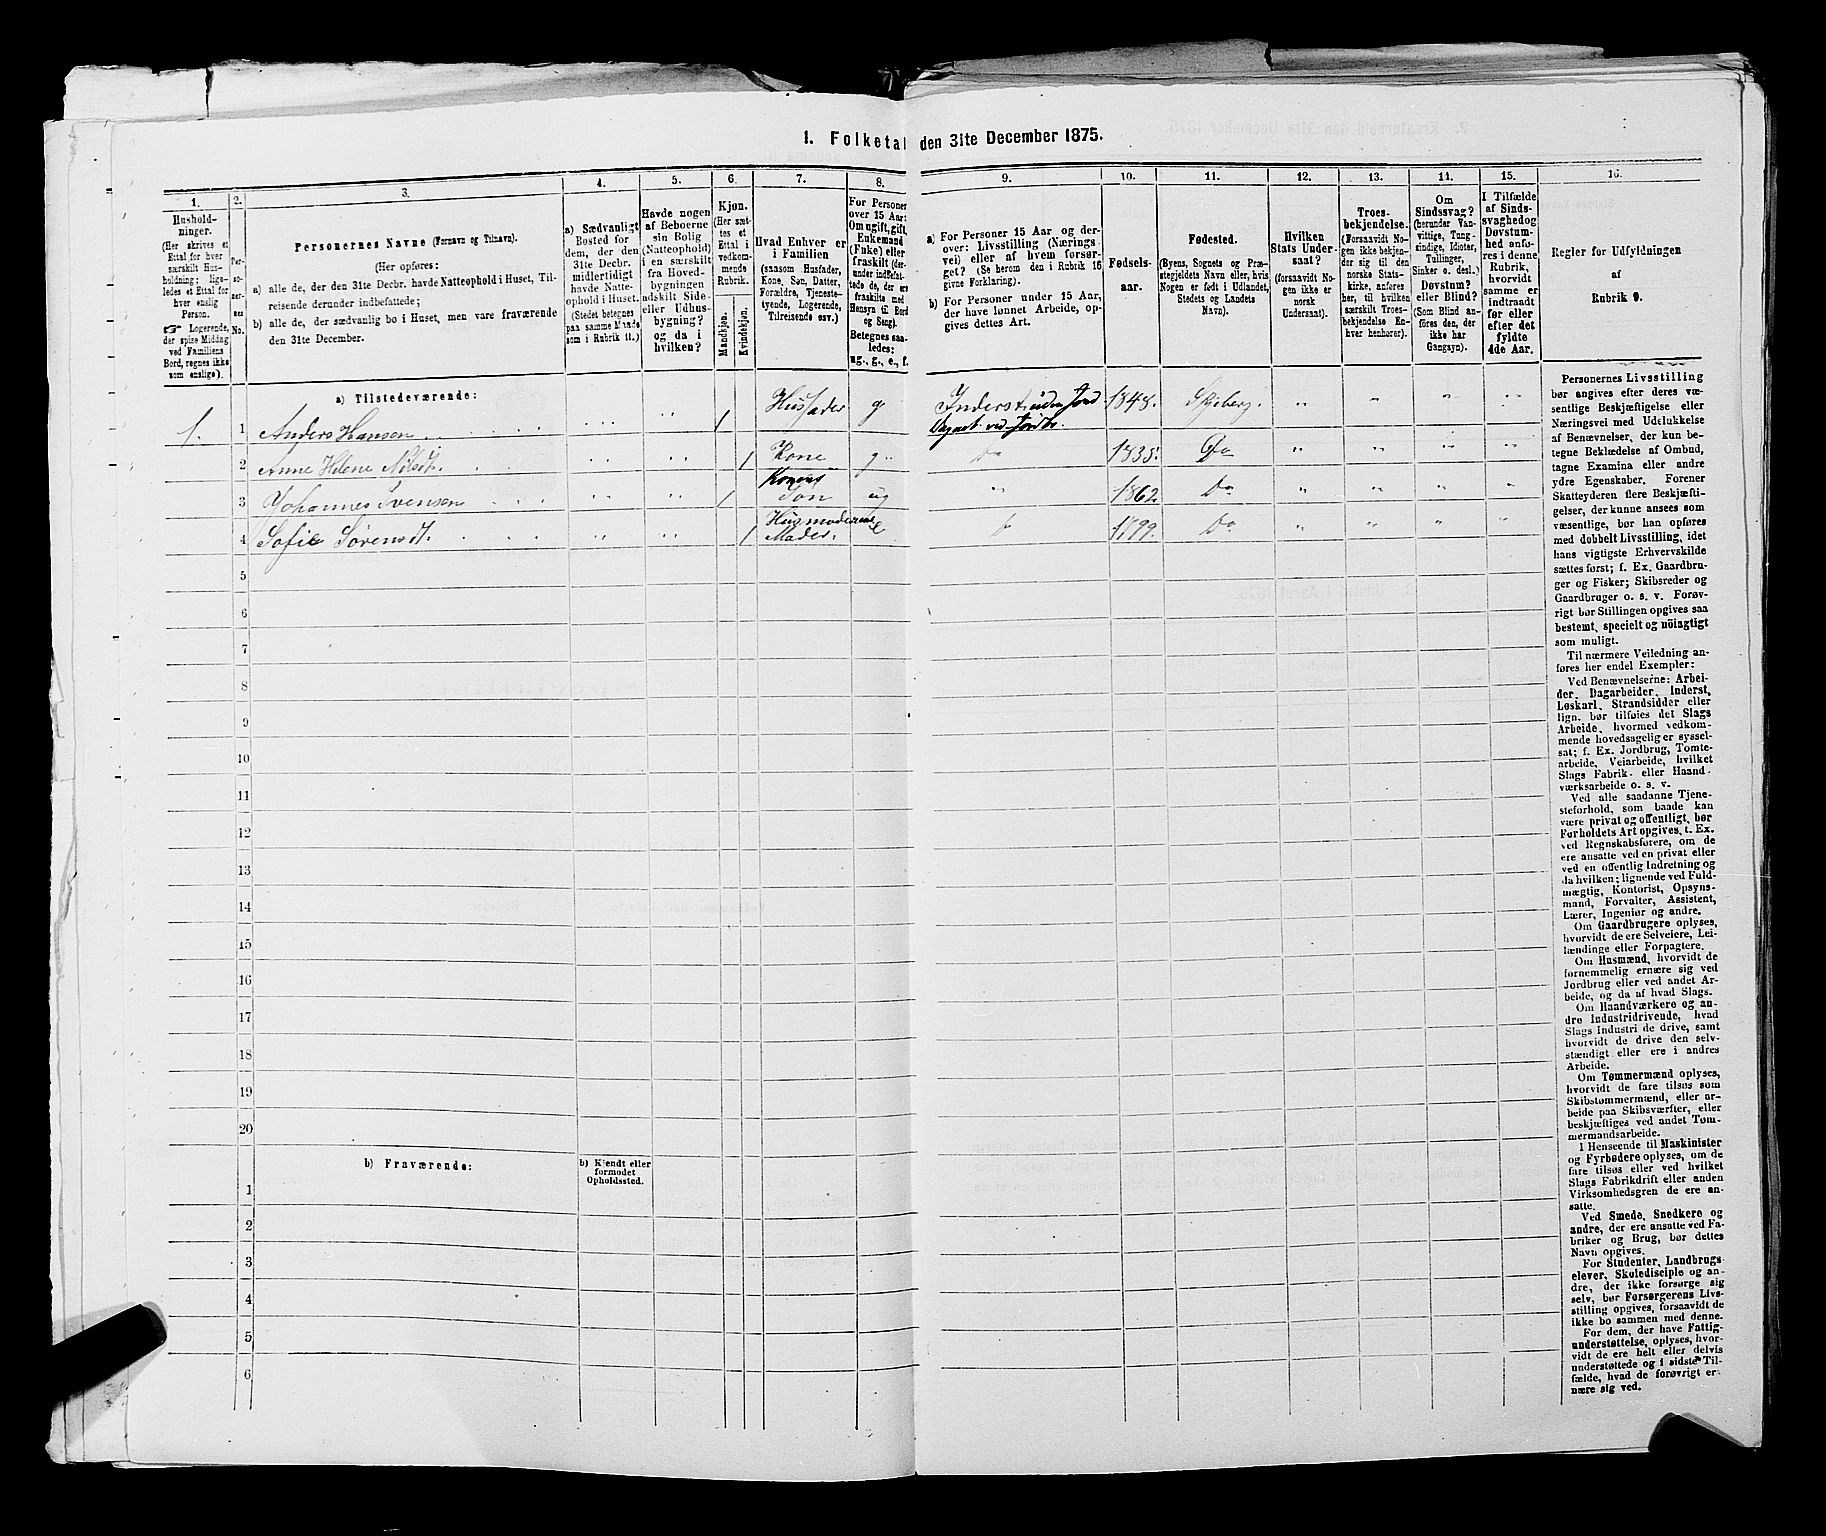 1. Folketal den 31te December 1875.
1. 2. 3. 4. 5. 6. 7. 8. 9. 10. 11. 12. 13. 14. 15. 16.
Hushold-
ninger.
(Her skrives et
Ettal for hver
særskilt Hus-
holdning; lige-
ledes et Ettal for
hver enslig
Person.
☞ Logerende,
der spise Middag
ved Familiens
Bord, regnes ikke
som enslige).
Per-
soner-
nes
No.
Personernes Navne (Fornavn og Tilnavn).
(Her opføres:
a) alle de, der den 31te Decbr. havde Natteophold i Huset, Til-
reisende derunder indbefattede;
b) alle de, der sædvanlig bo i Huset, men vare fraværende
den 31te December.
a) Sædvanligt
Bosted for
dem, der den
31te Decbr.
midlertidigt
havde Natte-
ophold i Huset.
(Stedet betegnes
paa samme Maade
som i Rubrik 11.)
Havde nogen
af Beboerne
sin Bolig
(Natteophold)
i en særskilt
fra Hoved-
bygningen
adskilt Side-
eller Udhus-
bygning?
og da i
hvilken?
Kjøn.
(Her sæt-
tes et
Ettal i
vedkom-
mende
Rubrik.
Mandkjøn.
Kvindekjøn.
Hvad Enhver er
i Familien
(saasom Husfader,
Kone, Søn, Datter,
Forældre, Tjeneste-
tyende, Logerende,
Tilreisende osv.)
For Personer
over 15 Aar:
Om ugift, gift,
Enkemand
(Enke) eller
fraskilt (der-
under indbefat-
tede de, der ere
fraskilte med
Hensyn til Bord
og Seng).
Betegnes saa-
ledes:
ug., g., e., f.
a) For Personer 15 Aar og der-
over: Livsstilling (Nærings-
vei) eller af hvem forsør-
get? (Se herom den i Rubrik 16
givne Forklaring).
b) For Personer under 15 Aar,
der have lønnet Arbeide, op-
gives dettes Art.
Fødsels-
aar.
Fødested.
(Byens, Sognets og Præ-
stegjeldets Navn eller, hvis
Nogen er født i Udlandet,
Stedets og Landets
Navn).
Hvilken
Stats Under-
saat?
(forsaavidt No-
gen ikke er
norsk
Undersaat).
Troes-
bekjendelse.
(Forsaavidt No-
gen ikke bekjen-
der sig til den
norske Stats-
kirke, anføres
her, til hvilken
særskilt Troes-
bekjendelse En-
hver henhører).
Om
Sindssvag?
(herunder Van-
vittige, Tung-
sindige, Idioter,
Tullinger,
Sinker o. desl.)
Døvstum?
eller Blind?
(Som Blind an-
føres den, der
ikke har
Gangsyn).
I Tilfælde
af Sinds-
svaghed og
Døvstum-
hed anfø-
res i denne
Rubrik,
hvorvidt
samme er
indtraadt
før eller
efter det
fyldte
4de Aar.
Regler for Udfyldningen
af
Rubrik 9.
a) Tilstedeværende:
1. 1 Anders Hansen 1 Husfader g Inderst uden Jord 1848. Skjeberg.
Dagarb. ved Jordbr.
2 Anne Helene Nilsdt. 1 Kone g Do 1835. Do
3 Johannes Svensen 1 Konens Søn ug 1862. Do
4 Sofie Sørensdt. 1 Husmoderens Moder. e 1799. Do
5
6
7
8
9
10
11
12
13
14
15
16
17
18
19
20
b) Fraværende:
b) Kjendt eller
formodet
Opholdssted.
1
2
3
4
5
6
Personernes Livsstilling
bør angives efter deres væ-
sentlige Beskjæftigelse eller
Næringsvei med Udelukkelse
af Benævnelser, der kun be-
tegne Beklædelse af Ombud,
tagne Examina eller andre
ydre Egenskaber. Forener
Skatteyderen flere Beskjæfti-
gelser, der kunne ansees som
væsentlige, bør han opføres
med dobbelt Livsstilling, idet
hans vigtigste Erhvervskilde
sættes først; f. Ex. Gaardbru-
ger og Fisker; Skibsreder og
Gaardbruger o. s. v. Forøv-
rigt bør Stillingen opgives saa
bestemt, specielt og nöiagtigt
som muligt.
Til nærmere Veiledning an-
føres her endel Exempler:
Ved Benævnelserne: Arbei-
der, Dagarbeider, Inderst,
Løskarl, Strandsidder eller
lign. bør tilføies det Slags
Arbeide, hvormed vedkom-
mende hovedsagelig er syssel-
sat; f. Ex. Jordbrug, Tomte-
arbeide, Veiarbeide, hvilket
Slags Fabrik- eller Haand-
værksarbeide o. s. v.
Ved alle saadanne Tjene-
steforhold, som baade kan
være privat og offentligt, bør
Forholdets Art opgives, t. Ex.
ved Regnskabsførere, om de
ere ansatte ved en privat eller
ved en offentlig Indretning og
da hvilken; lignende ved Fuld-
mægtig, Kontorist, Opsyns-
mand, Forvalter, Assistent,
Lærer, Ingeniør og andre.
Om Gaardbrugere oplyses,
hvorvidt de ere Selveiere, Lei-
lændinge eller Forpagtere.
Om Husmænd, hvorvidt de
fornemmelig ernære sig ved
Jordbrug eller ved andet Ar-
beide, og da af hvad Slags.
Om Haandværkere og an-
dre Industridrivende, hvad
Slags Industri de drive, samt
hvorvidt de drive den selv-
stændigt eller ere i andres
Arbeide.
Om Tømmermænd oplyses,
hvorvidt de fare tilsøs som
Skibstømmermænd, eller ar-
beide paa Skibsværfter, eller
beskjæftiges ved andet Tøm-
mermandsarbeide.
I Henseende til Maskinister
og Fyrbødere oplyses, om de
fare tilsøs eller ved hvilket
Slags Fabrikdrift eller anden
Virksomhedsgren de ere an-
satte.
Ved Smede, Snedkere og
andre, der ere ansatte ved Fa-
briker og Brug, bør dettes
Navn opgives.
For Studenter, Landbrugs-
elever, Skoledisciple og an-
dre, der ikke forsørge sig
selv, bør Forsørgerens Livs-
stilling opgives, forsaavidt de
ikke bo sammen med denne.
For dem, der have Fattig-
understøttelse, oplyses, hvor-
vidt de ere helt eller delvis
understøttede og i sidste Til-
fælde, hvad de forøvrigt er-
nære sig ved.